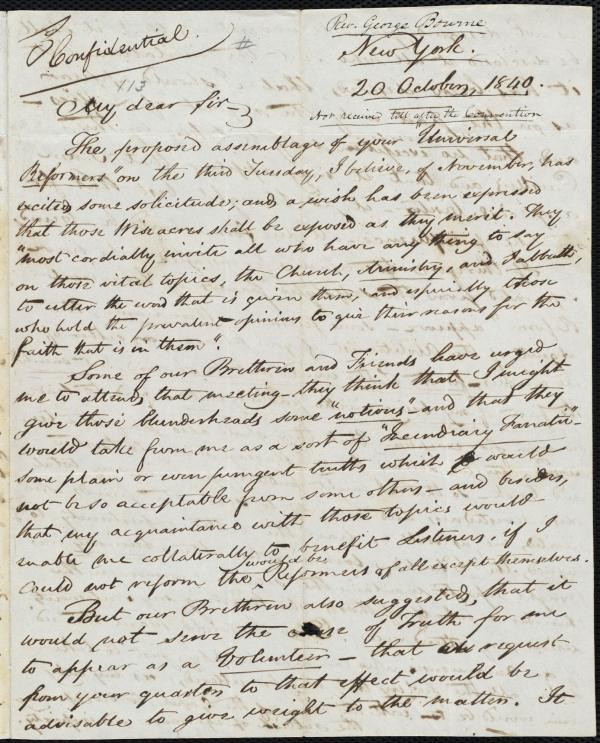 Confidential.
#
Rev. George Bourne
New York.
20 October, 1840.
113
My dear Sir
Not received till after the Convention
The, proposed assemblages of your "Universal
Reformers" on the third Tuesday, I believe, of November, has
excited some solicitude; and a wish has been expressed
that those Wiseacres shall be exposed as they merit. They
"most cordially invite all who have any thing to say
on those vital topics, the Church, Ministry, and Sabbath,
to utter the word that is given them, and especially those
who hold the prevalent opinions to give their reasons for the
faith that is in them".
Some of our Brethren and Friends have urged
me to attend that meeting—they think that I might
give those blunderheads some "notions"—and that they
would take from me as a sort of "Incendiary Fanatic"
some plain or even pungent truths which would
not be so acceptable from some others—and besides,
that my acquaintance with those topics would
enable me collaterally to benefit Listeners, if I
could not reform the would be Reformers of all except themselves.
But our Brethren also suggested, that it
would not serve the cause of Truth for me
to appear as a Volunteer—that a request
from your quarters to that effect would be
advisable to give weight to the matter. It